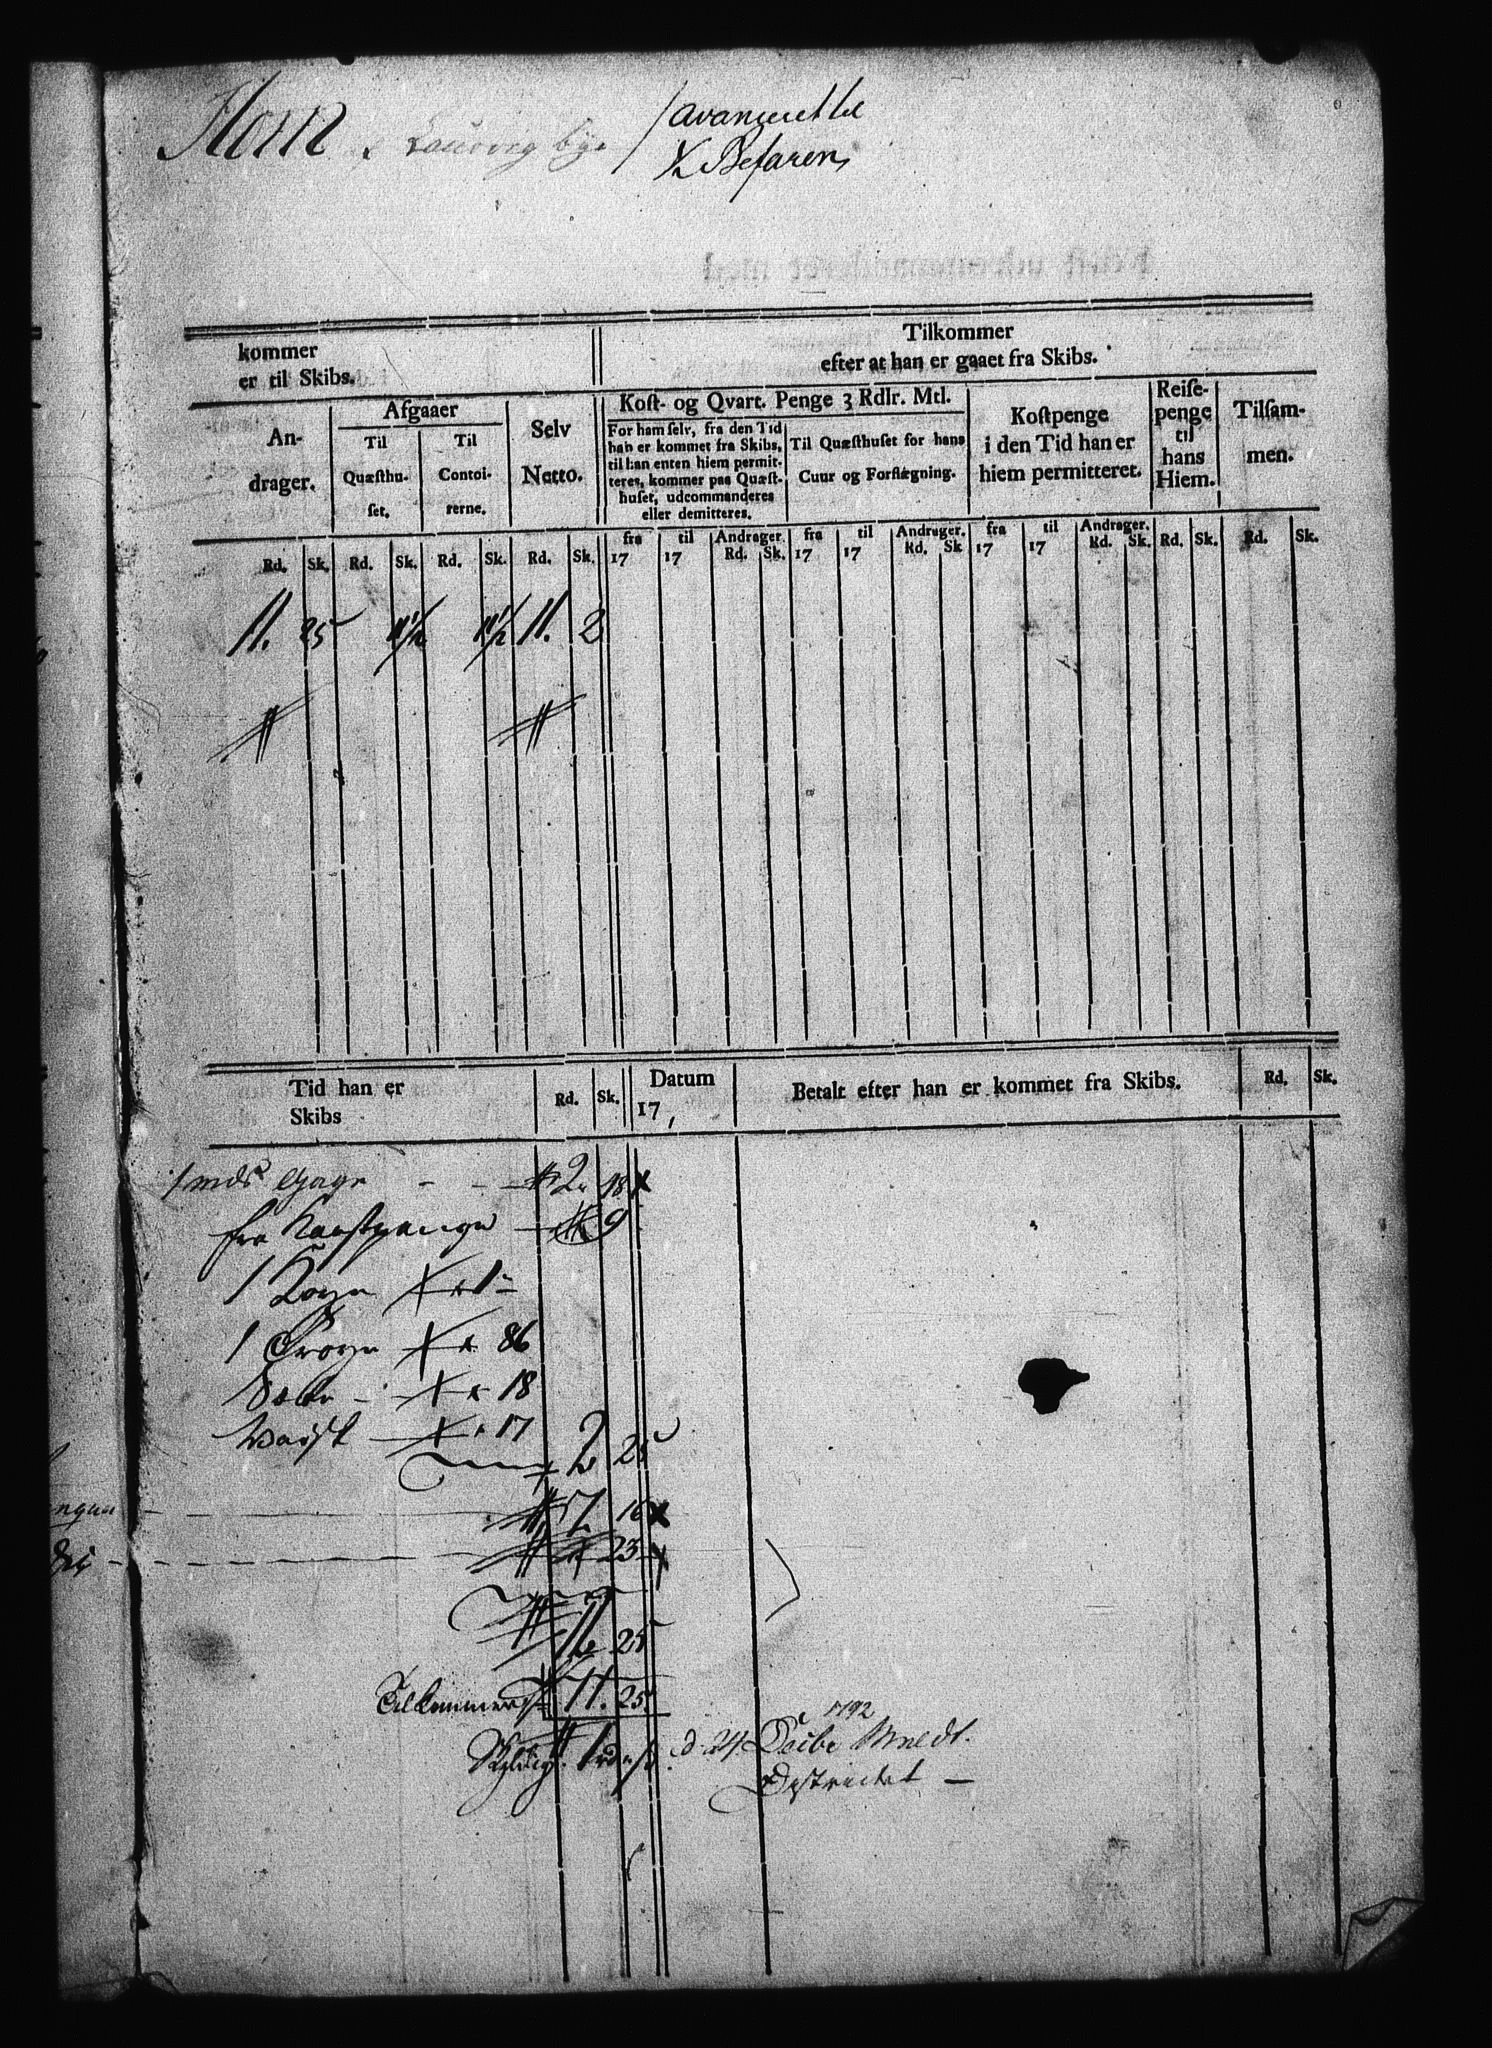 Horn Laurvig bye / avanceret til
X Befaren,
kommer
er til Skibs.
Tilkommer
efter at han er gaaet fra Skibs.
An-
drager.
Afgaaer
Til
Quæsthu-
set.
Til
Contoi-
rerne.
Selv
Netto.
Kost- og Qvart. Penge 3 Rdlr. Mtl.
For ham selv, fra den Tid
han er kommet fra Skibs,
til han enten hiem permit-
teres, kommer paa Quæst-
huset, udcommanderes
eller demitteres.
Til Quæsthuset for hans
Cuur og Forflægning.
Kostpenge
i den Tid han er
hiem permitteret.
Reise-
penge
til
hans
Hiem.
Tilsam-
men.
fra til Andrager. fra til Andrager. fra til Andrager.
Rd. Sk. Rd. Sk. Rd. Sk. Rd. Sk. 17 17 Rd. Sk. 17 17 Rd. Sk 17 17 Rd. Sk. Rd. Sk. Rd. Sk.
11. 25 11½ 11½ 11. 2
Tid han er
Skibs
Rd. Sk.
Datum
17,
Betalt efter han er kommet fra Skibs.
Rd. Sk.
1 mds Gage - - - 2 18 x
fra Kaastpenge 9
1 1
1 Trøye 86
18
17
2 25
16 x
23 x
11 25
Tilkommer 11. 25
1792
d. 24
Districtet